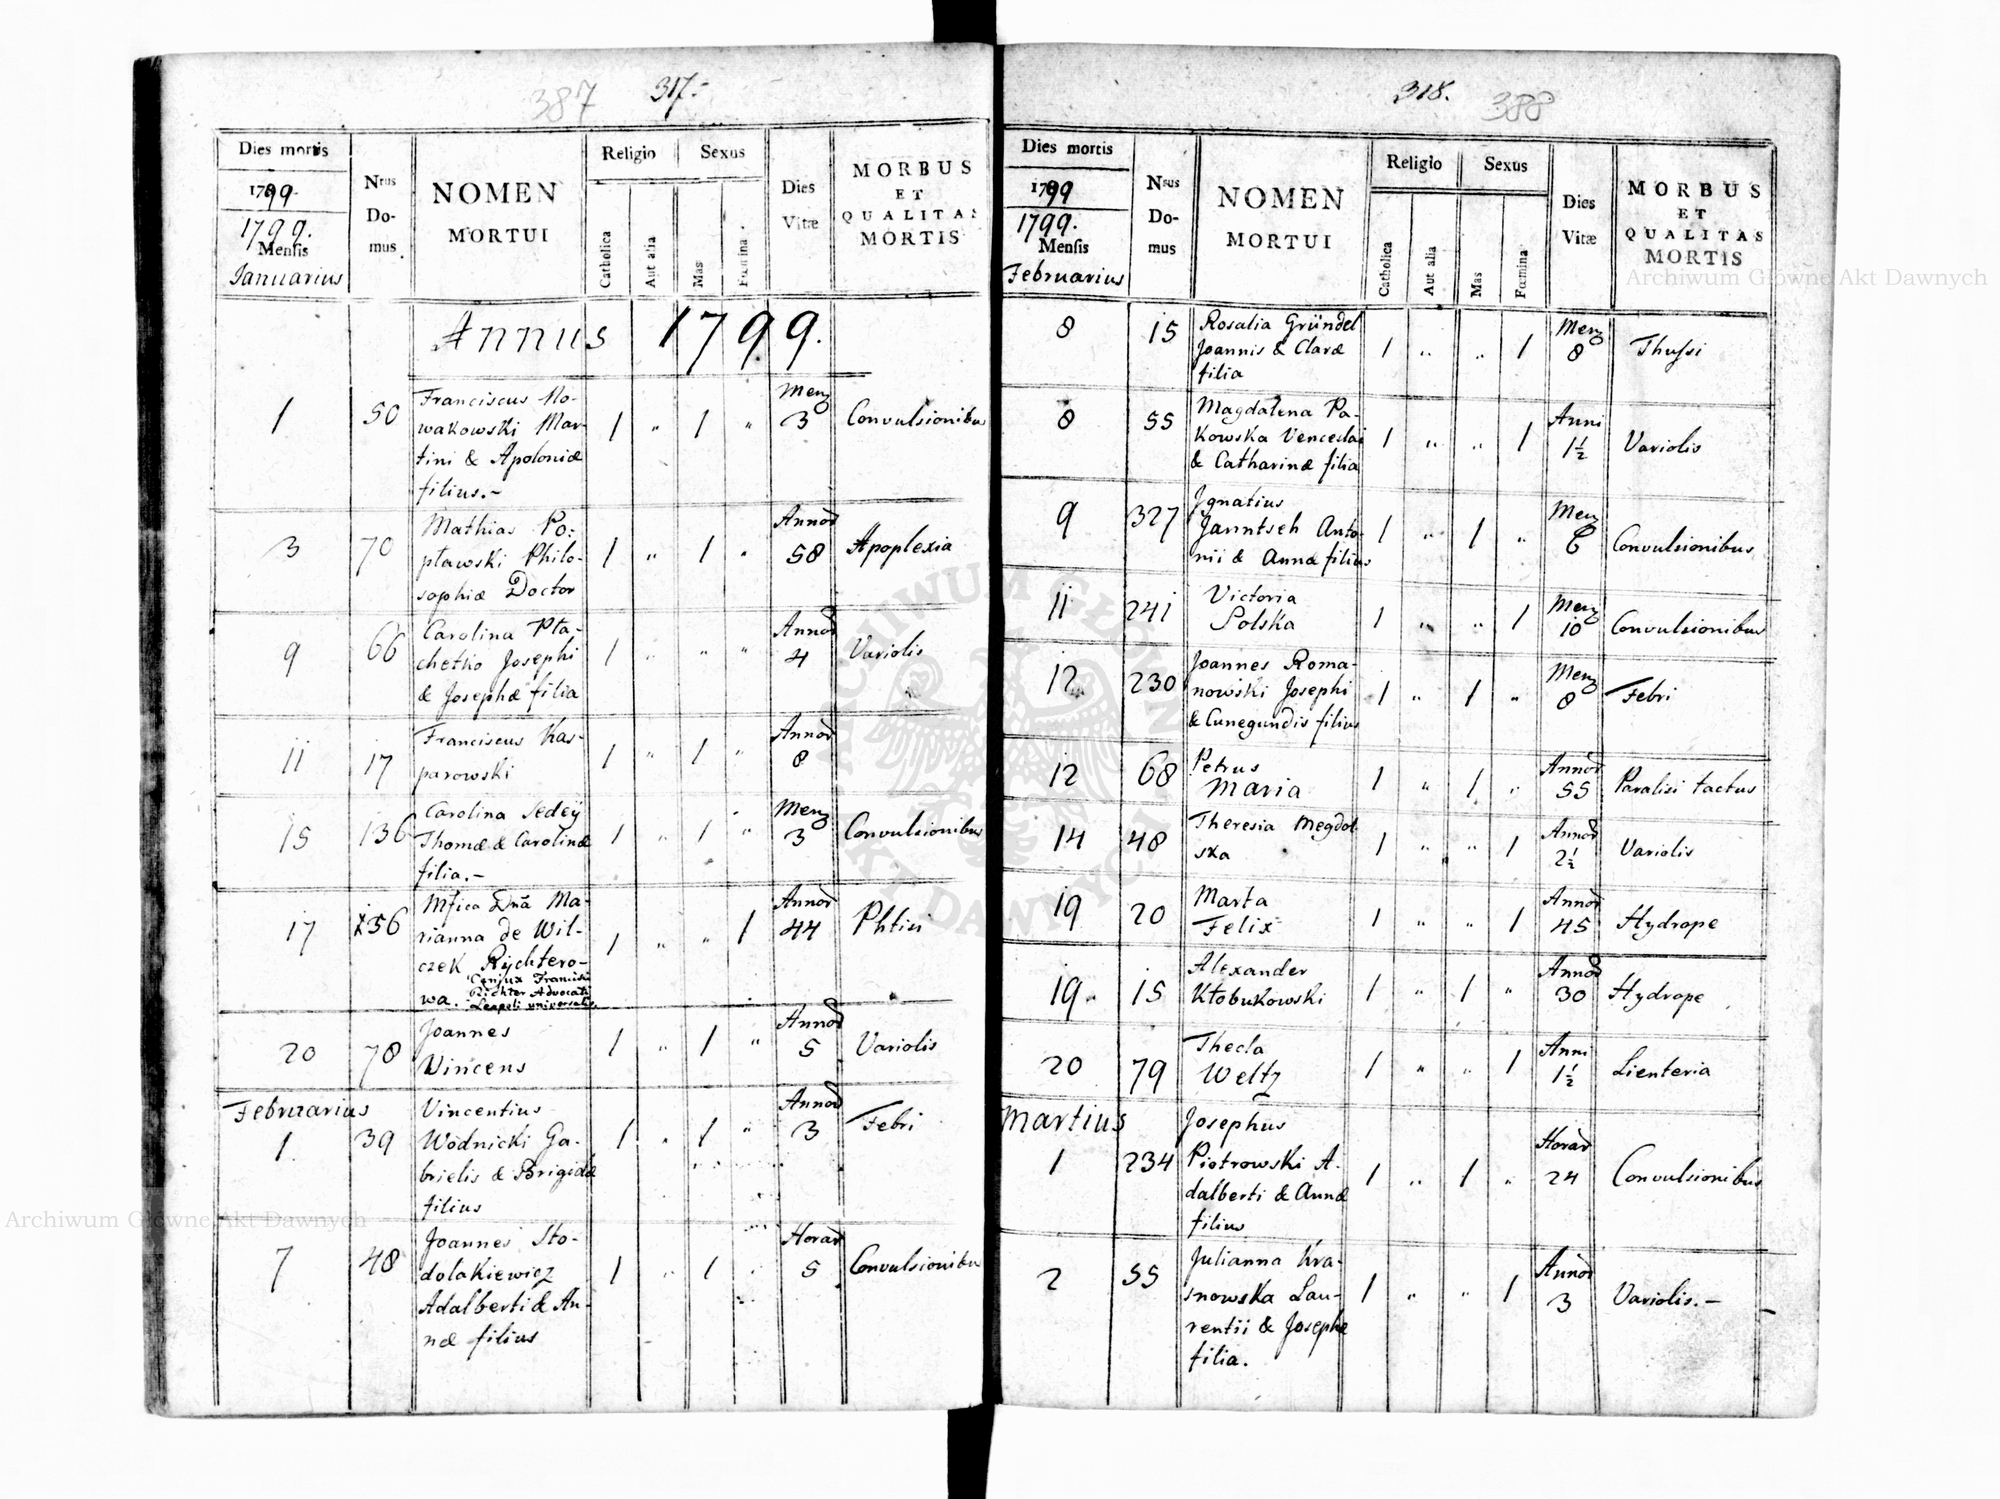 387 317.
Dies mortis
1799.
1799.
Mensis
Januarius
Nrus
Do-
mus.
NOMEN
MORTUI
Religio
Catholica
Aut alia
Sexus
Mas
Fœmina
Dies
Vitæ
MORBUS
ET
QUALITAS
MORTIS
Annus 1799.
1 50 Franciscus No-
wakowski Mar-
tini & Apoloniæ
filius.-
1 " 1 " Menz
3 Convulsionibus
3 70 Mathias Po-
pławski Philo-
sophiæ Doctor
1 " 1 " Annor
58 Apoplexia
9 66 Carolina Pta-
chetko Josephi
& Josephæ filia
1 " " " Annor
4 Variolis
11 17 Franciscus Kas-
parowski
1 " 1 " Annor
8
15 136 Carolina Sedey
Thomæ & Carolinæ
filia.-
1 " 1 " Menz
3 Convulsionibus
17 256 Mfica Dnā Ma-
rianna de Wil-
czek Rychtero-
wa. Conjux Francisci
Richter Advocati
Leopoli universalis
1 " " 1 Annor
44 Phtisi
20 78 Joannes
Vincens
1 " 1 " Annor
5 Variolis
Februarius
1 39 Vincentius
Wodnicki Ga-
brielis & Brigidæ
filius
1 " 1 " Annor
3 Febri
7 48 Joannes Sto-
dolakiewicz
Adalberti & An-
næ filius
1 " 1 " Horar
5 Convulsionibus
318. 388
Dies mortis
1799
1799.
Mensis
Februarius
Nrus
Do-
mus
NOMEN
MORTUI
Religio
Catholica
Aut alia
Sexus
Mas
Fœmina
Dies
Vitæ
MORBUS
ET
QUALITAS
MORTIS
8 15 Rosalia Gründel
Joannis & Claræ
filia
1 " " 1 Menz
8 Thussi
8 55 Magdalena Pa-
kowska Venceslai
& Catharinæ filia
1 " " 1 Anni
1½ Variolis
9 327 Ignatius
Janntseh Anto-
nii & Annæ filius
1 " 1 " Menz
6 Convulsionibus
11 241 Victoria
Polska
1 " " 1 Menz
10 Convulsionibus
12 230 Joannes Roma-
nowski Josephi
& Cunegundis filius
1 " 1 " Menz
8 Febri
12 68 Petrus
Maria
1 " 1 " Annor
55 Paralisi tactus
14 48 Theresia Megdol-
ska
1 " " 1 Annor
2½ Variolis
19 20 Marta
Felix
1 " " 1 Annor
45 Hydrope
19 15 Alexander
Kłobukowski
1 " 1 " Annor
30 Hydrope
20 79 Thecla
Weltz
1 " " 1 Anni
1½ Lienteria
Martius
1 234 Josephus
Piotrowski A-
dalberti & Annæ
filius
1 " 1 " Horar
24 Convulsionibus
2 55 Julianna Kra-
snowska Lau-
rentii & Josephæ
filia.
1 " " 1 Annor
3 Variolis.-
Archiwum Główne Akt Dawnych
Archiwum Główne Akt Dawnych
ARCHIWUM GŁÓWNE AKT DAWNYCH